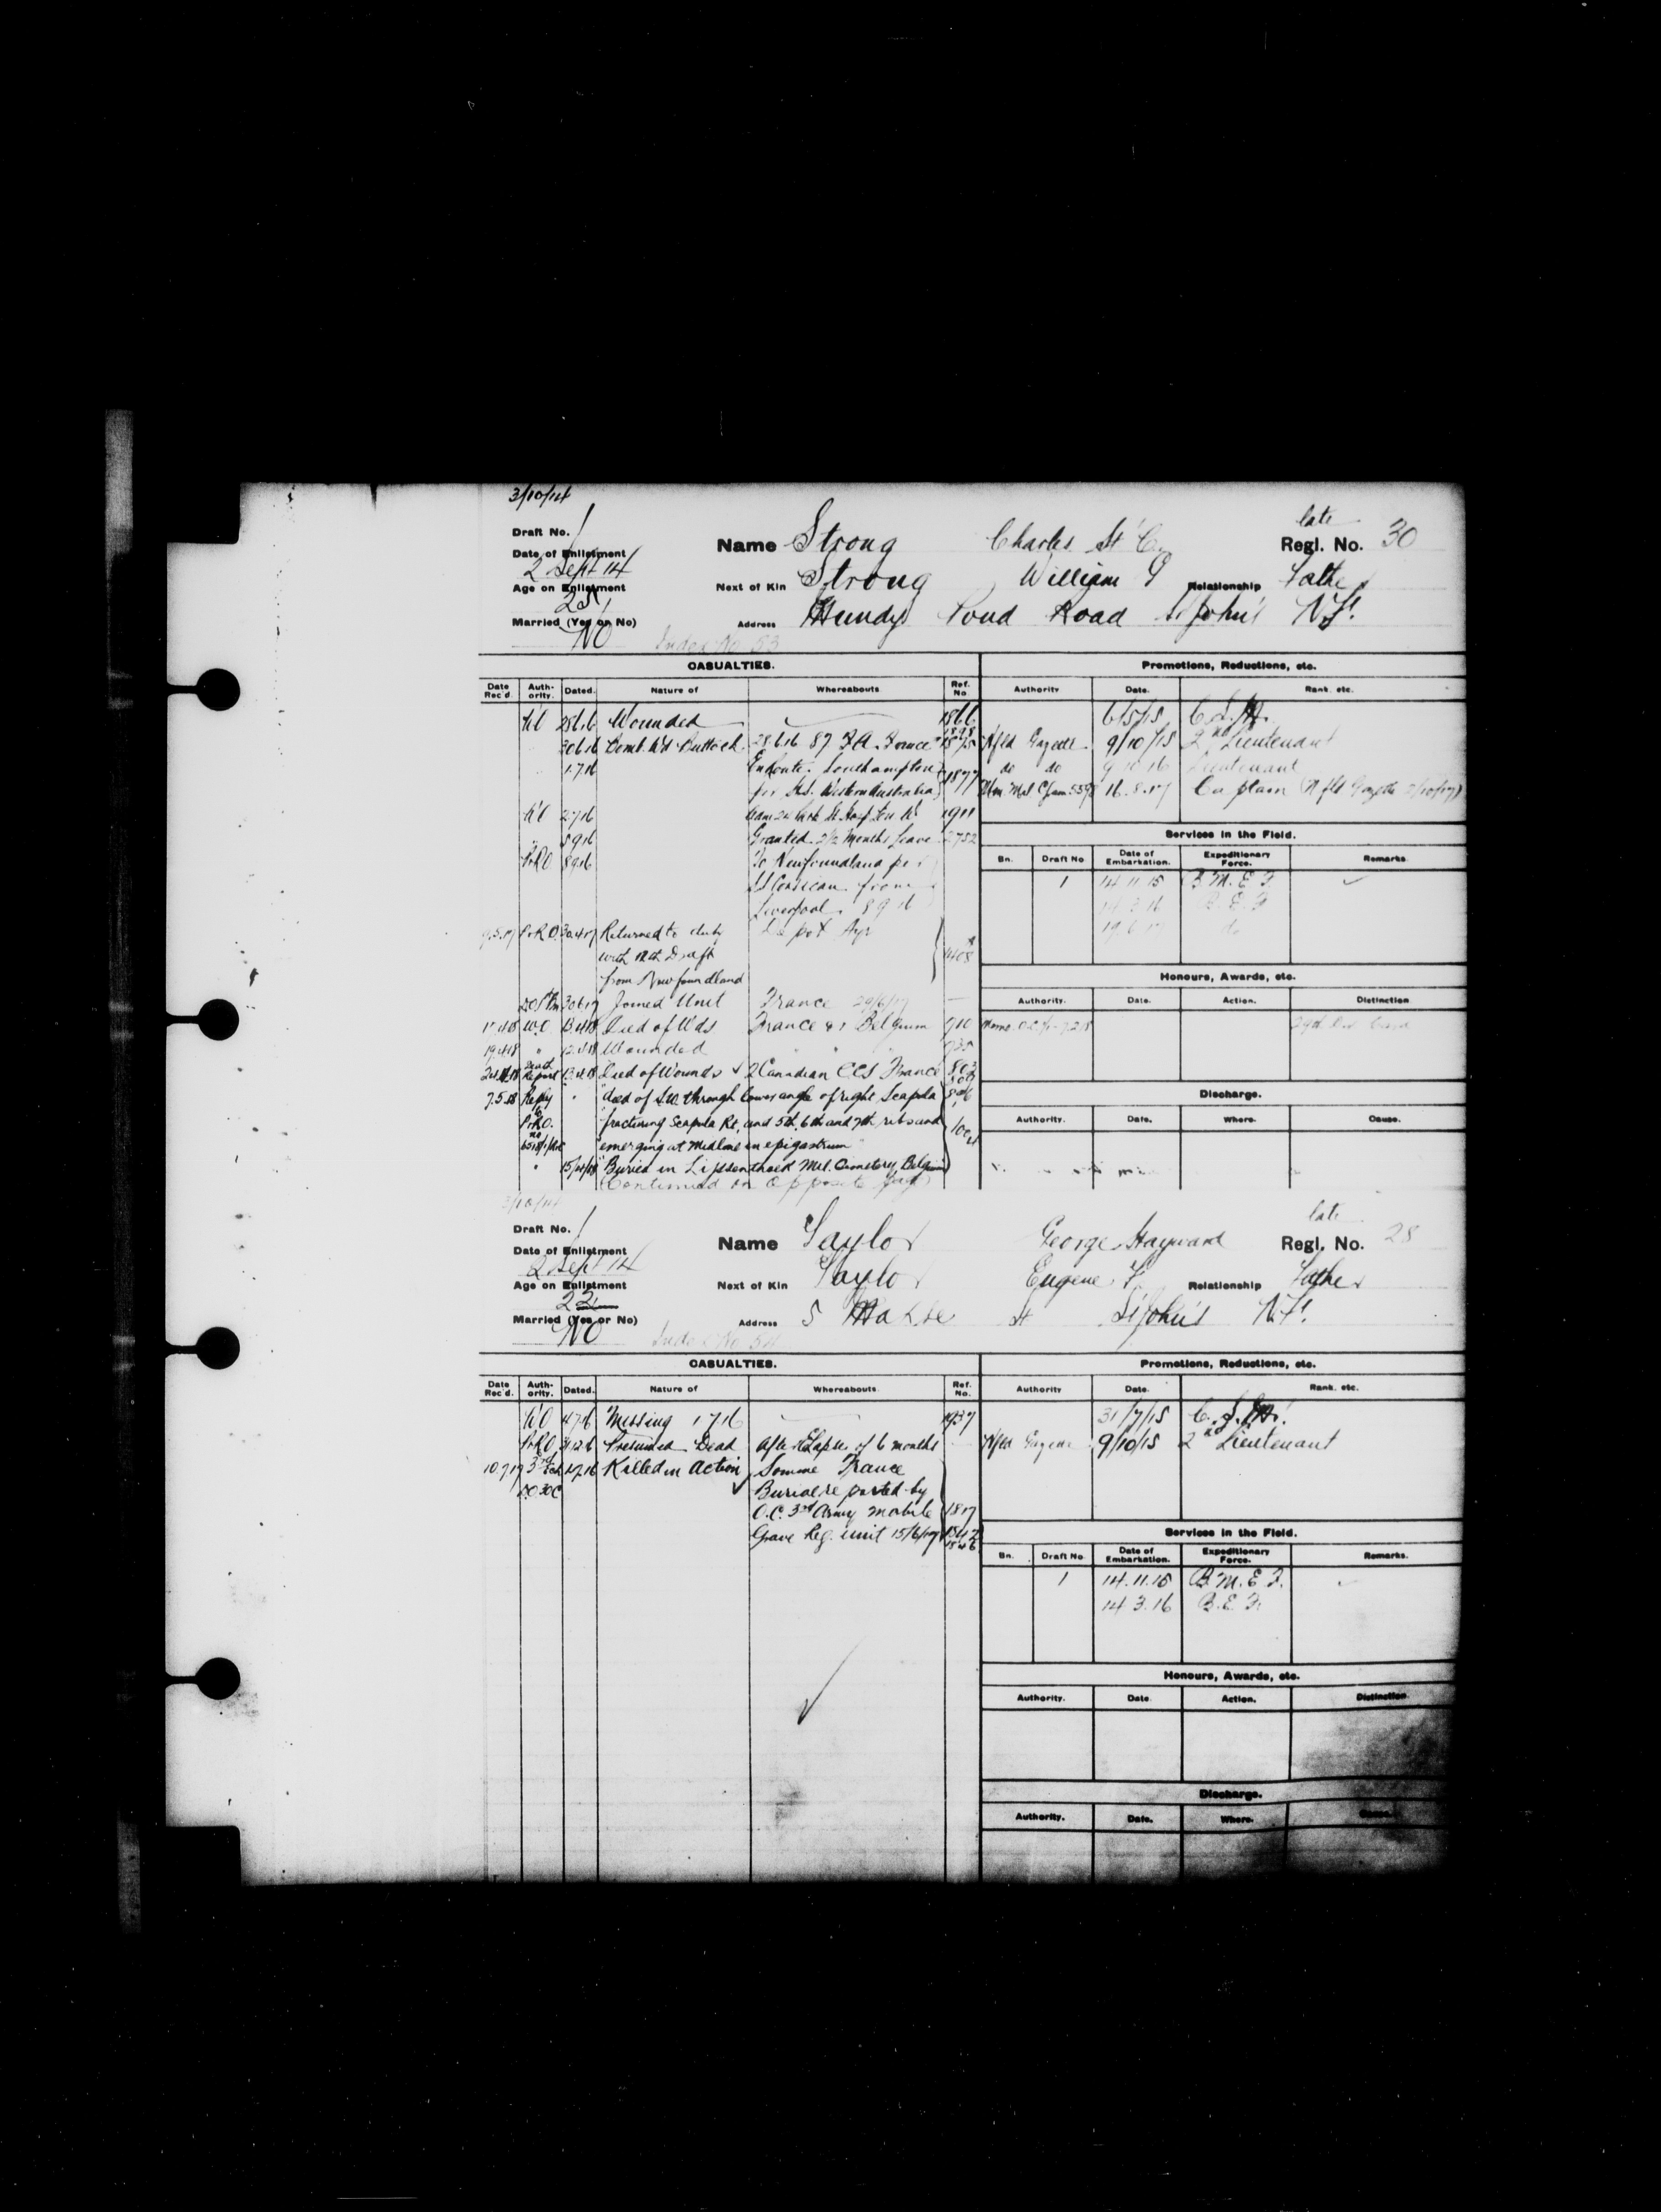 3/10/14
Draft No. 1
Name Strong Charles St C. late Regl. No. 30
Date of Enlistment
2 Sept 14
Next of Kin Strong William Relationship Father
Age on Enlistment
Address Pond Road St John's Nfd.
Married (Yes or No)
No Index No 53
CASUALTIES.
Promotions, Reductions, etc.
Date Rec'd. Authority. Dated. Nature of Whereabouts Ref. No. Authority Date. Rank. etc.
WO 28616 Wounded 1866 6/5/15 C.S.M.
30616 Bomb. Wd Buttock 28616 87 F.A. France Nfld Gazette 9/10/15 2nd Lieutenant
1716 En Route. Southampton do do 9 10 16 Lieutenant
per H.S. Western Australia 1877 16.8.17 Captain (Nfld Gazette
WO 2716 1911
5916 Granted 2½ Months Leave 2752
P&RO 8916 To Newfoundland per
SS Corsican from
Liverpool. 8 9 16
Services in the Field.
Bn. Draft No Date of Embarkation. Expeditionary Force. Remarks
1 14.11.15 B.M.E.F.
14.3.16 B.E.F
19.6.17 do
9.5.17 P&RO 30417 Returned to duty Depot Ayr
with 12th Draft 1408
from Newfoundland
30617 Joined Unit France 20/6/17
W.O. 13418 Died of Wds France or Belgium 710
19418 " 12418 Wounded " " " 735
Death Report 13.4.18 Died of Wounds 2 Canadian CCS France
7.5.18 Reply " "died of S.W. through lower angle of right Scapula
P&RO. "fracturing Scapula Rt, and 5th, 6th and 7th ribs and
"emerging at Midline in epigastrium"
" 15/4/18 "Buried in Lijssenthoek Mil. Cemetery, Belgium
(Continued on opposite page)
Honours, Awards, etc.
Authority. Date. Action. Distinction
29th Div
Discharge.
Authority. Date. Where. Cause.
3/10/14
Draft No. 1
Name Taylor George Hayward late Regl. No. 28
Date of Enlistment
2 Sept 14
Next of Kin Taylor Eugene F. Relationship Father
Age on Enlistment
22
Address 5 St St John's Nfd.
Married (Yes or No)
No Index No 54
CASUALTIES.
Promotions, Reductions, etc.
Date Rec'd. Authority. Dated. Nature of Whereabouts Ref. No. Authority Date. Rank. etc.
WO 4716 Missing 1 7 16 1937 31/7/15 C.S.M.
P&RO 311216 Presumed Dead After Lapse of 6 months Nfld Gazette 9/10/15 2nd Lieutenant
10.7.17 1.7.16 Killed in Action Somme France
Burial reported by
O.C. 3rd Army Mobile 1817
Grave Reg. Unit 15/6/17 1842
1846
Services in the Field.
Bn. Draft No Date of Embarkation. Expeditionary Force. Remarks.
1 14.11.15 B.M.E.F.
14 3.16 B.E.F.
Honours, Awards, etc.
Authority. Date Action. Distinction
Discharge.
Authority. Date. Where. Cause.